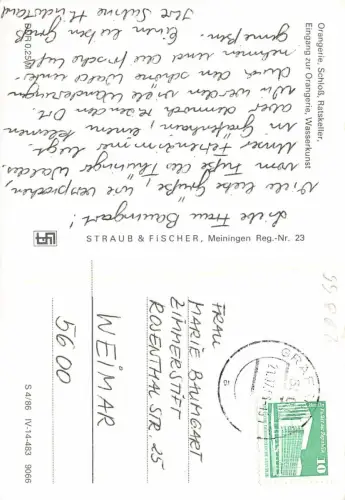 Orangerie, Schloß, Ratskeller,
Eingang zur Orangerie, Wasserkunst
Liebe Frau Baumgart!
Viele liebe Grüße, wie versprochen,
vom Fuße des Thüringer Waldes.
Unser Ferienzimmer liegt
in Gräfenhain, einem kleinen
aber dennoch reizenden Ort.
Wir werden viele Wanderungen
durch den schönen Wald unter-
nehmen und die frische Luft
genießen.
Einen lieben Gruß
Ihre Sabine
STRAUB & FISCHER, Meiningen Reg.-Nr. 23
FRAU
MARIE BAUMGART
ZIMMERSTIFT
ROSENTHALSTR. 25
WEIMAR
5600
S 4/86 IV-14-483 9066
10